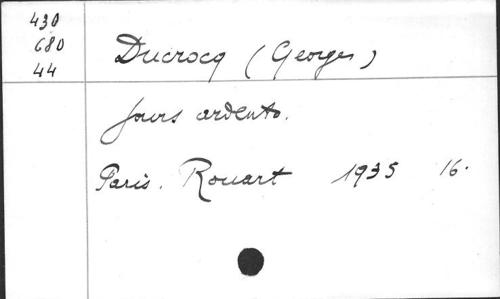 430
680
44
Ducrocq (Georges)
Jours ardents.
Paris. Rouart 1935 16.